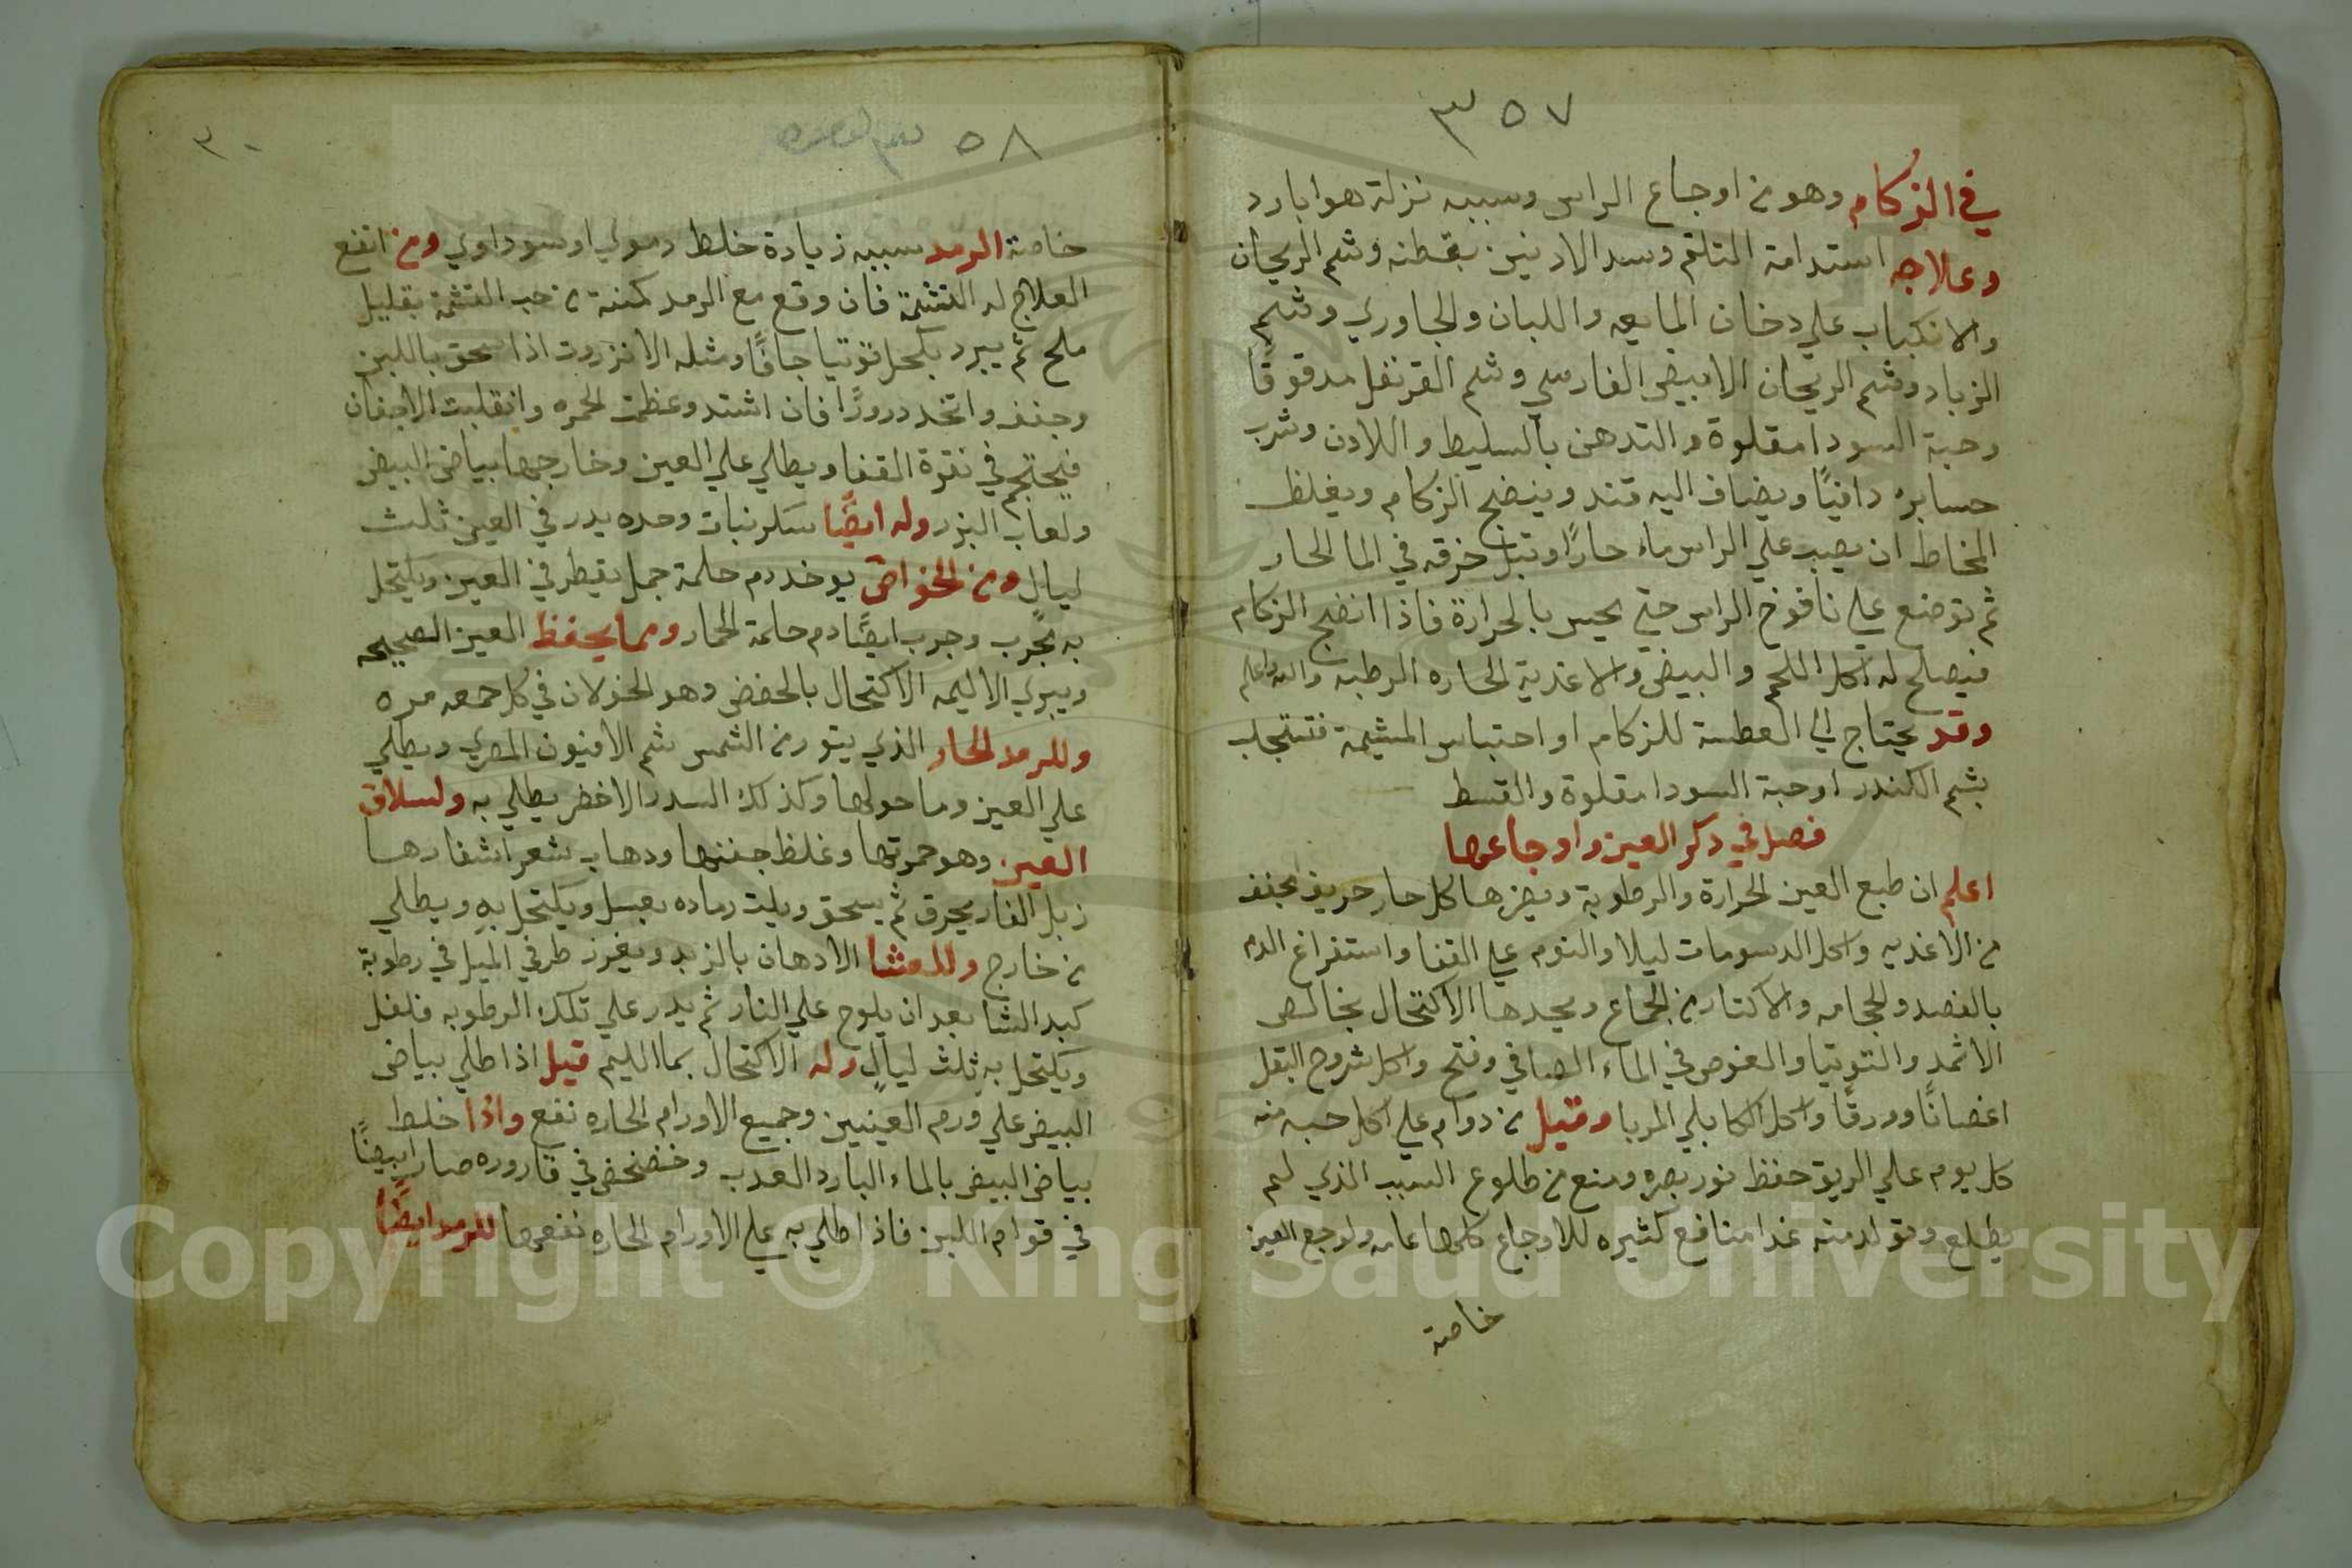 ٣٥٧
في الزكام وهو من اوجاع الراس وسببه نزلة هوا بارد
وعلاجه استدامة التلثم وسد الادنين بقطنه وشم الريحان
والانكباب علي دخان المايعه واللبان والجاوري وشم
الزباد وشم الريحان الابيض الفارسي وشم القرنفل مدقوقا
وحبة السودا مقلوة والتدهن بالسليط واللادن وشرب
حسابره دافيًا ويضاف اليه قند وينضج الزكام ويغلظ
المخاط ان يصب علي الراس ماء حارًا وتبل خرقه في الما الحار
ثم توضع علي نافوخ الراس حتي يحيس بالحرارة فاذا انضج الزكام
فيصلح له اكل اللحم والبيض والاغذية الحاره الرطبه والله اعلم
وقد يحتاج الي العطسة للزكام او احتباس المشيمة فتستجلب
بشم الكندر او حبة السودا مقلوة والقسط
فصل في دكر العين واوجاعها
اعلم ان طبع العين الحرارة والرطوبة ويضرها كل حار حريف مجفف
من الاغديه واكل الدسومات ليلا والنوم علي القفا واستفراغ الدم
بالفصد والحجامه والاكتار من الجماع ويحيدها الاكتحال بخالص
الاثمد والتوتيا والغوص في الماء الصافي وفتح واكل شروح البقل
اغصانًا وورقًا واكل الكابلي المربا وقيل من دوام علي اكل حبه منه
كل يوم علي الريق حفظ نور بصره ومنع من طلوع السبب الذي لم
يطلع وتولد منه غدا منافع كثيره للاوجاع كلها عامه ولوجع العين
خاصة
٥٨
٣٠
خاصة الرمد سببه زيادة خلط دموي او سوداوي ومن انفع
العلاج له التشمة فان وقع مع الرمد كمنة من حب التشمة بقليل
ملح ثم يبرد بكحل توتيا جافًا ومثله الانزروت اذا سحق باللبن
وجفف واتخد درورًا فان اشتد وعظمت الحمره وانقلبت الاجفان
فيحتجم في نقرة القفا ويطلي علي العين وخارجها بياض البيض
ولعاب البزر وله ايضًا سكر نبات وحده يدر في العين ثلث
ليال ومن الخواص يوخد دم حلمة جمل يقطر في العين ويكتحل
به مجرب وجرب ايضًا دم حلمة الحمار ومما يحفظ العين الصحيحه
ويبري الاليمه الاكتحال بالحضض وهو الخولان في كل جمعه مره
وللرمد الحار الذي يتور من الشمس شم الافيون المصري ويطلي
علي العين وما حولها وكذلك السدر الاخضر يطلي به ولسلاق
العين وهو حمرتها وغلظ جفنها ودهاب شعر اشفارها
زبل الفار يحرق ثم يسحق ويلت رماده بعسل ويكتحل به ويطلي
من خارج وللعشا الادهان بالزبد ويغرز طرفي الميل في رطوبة
كبد الشا بعد ان يلوح علي النار ثم يدر علي تلك الرطوبه فلفل
ويكتحل به ثلث ليال وله الاكتحال بما الليم قيل اذا طلي بياض
البيض علي ورم العينين وجميع الاورام الحاره نفع واذا خلط
بياض البيض بالماء البارد العدب وخضخض في قاروره صار ابيضًا
في قوام اللبن فاذا طلي به علي الاورام الحاره نفعها للرمد ايضًا
Copyright © King Saud University